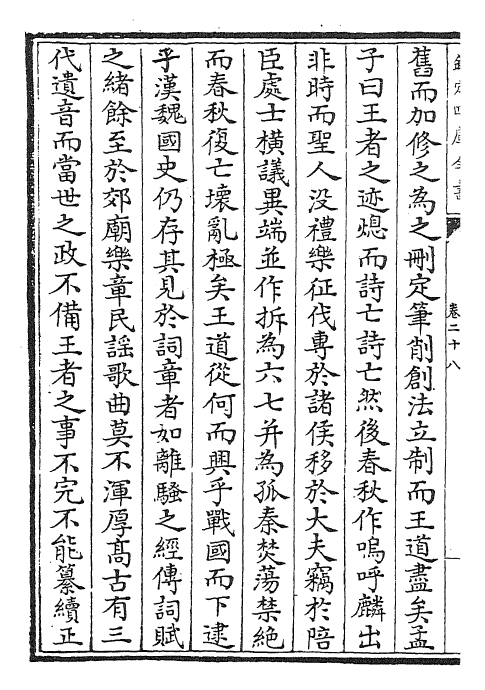 欽定四庫全書
卷二十八
舊而加修之為之刪定筆削創法立制而王道盡矣孟
子曰王者之迹熄而詩亡詩亡然後春秋作嗚呼麟出
非時而聖人没禮樂征伐專於諸侯移於大夫竊於陪
臣處士橫議異端並作拆為六七并為孤秦焚蕩禁絶
而春秋復亡壊亂極矣王道從何而興乎戰國而下逮
乎漢魏國史仍存其見於詞章者如離騷之經傳詞賦
之緒餘至於郊廟樂章民謡歌曲莫不渾厚髙古有三
代遺音而當世之政不備王者之事不完不能纂續正